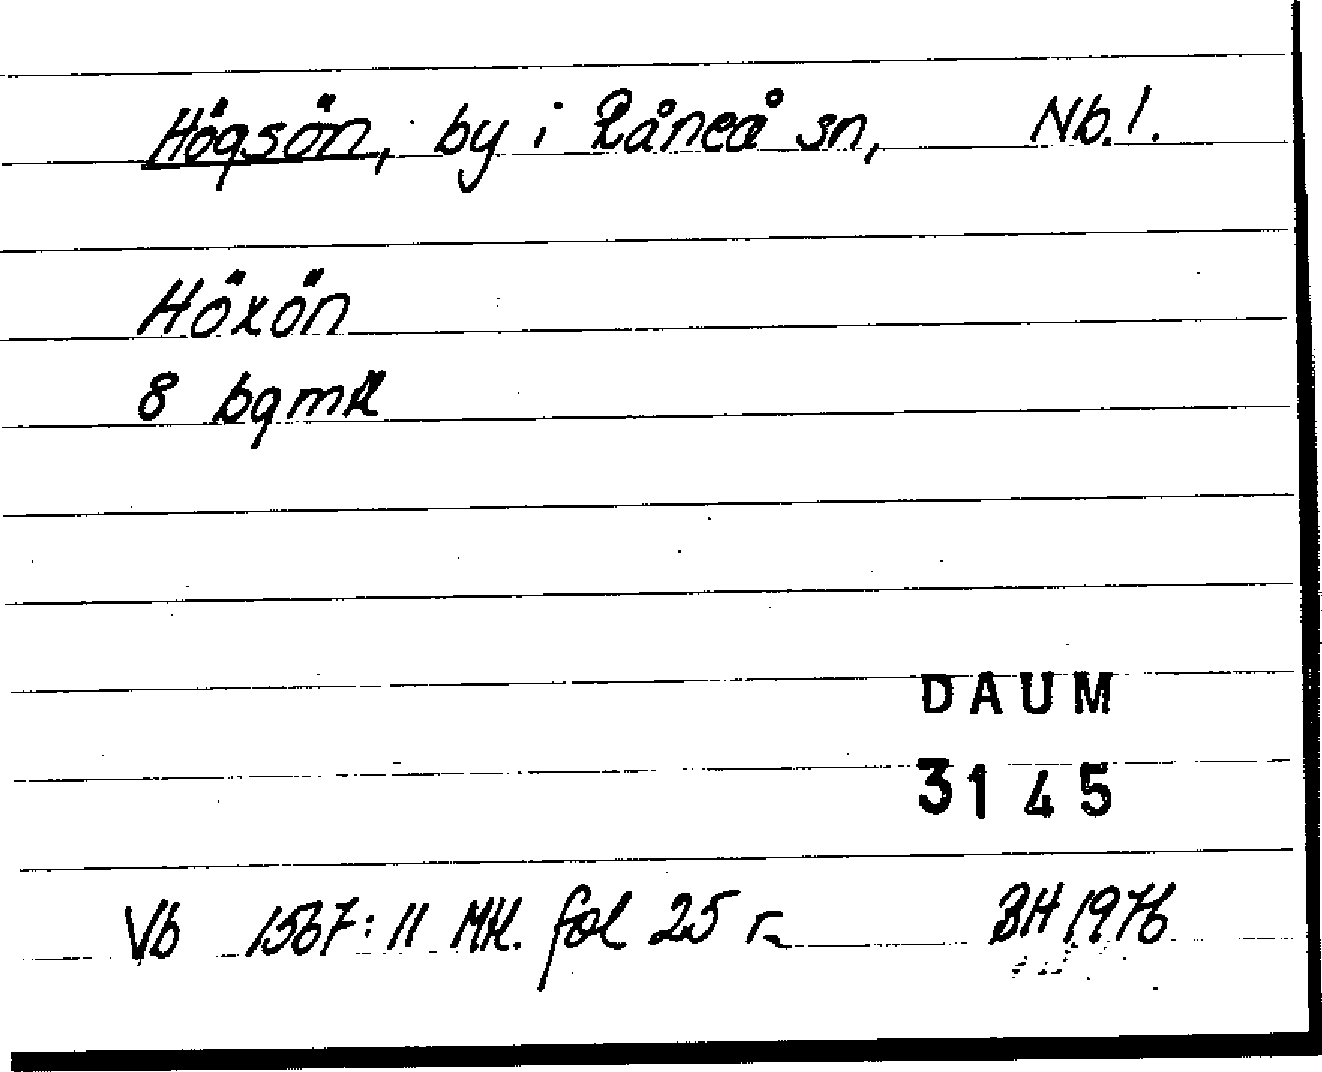 Högsön, by i Råneå sn, Nb.l.
Höxön
8 bgmk
DAUM
3145
Vb 1567:11 MH. fol 25 r. BH 1976